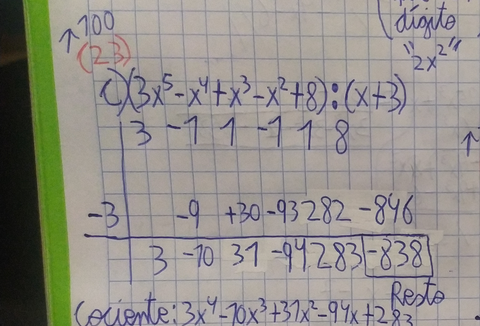 ↑100
(23)
dígito
"2x²"
C) (3x⁵-x⁴+x³-x²+8):(x+3)
3 -1 1 -1 1 8
-3 -9 +30 -93 282 -846
3 -10 31 -94 283 -838
Resto
Cociente: 3x⁴-10x³+31x²-94x+283